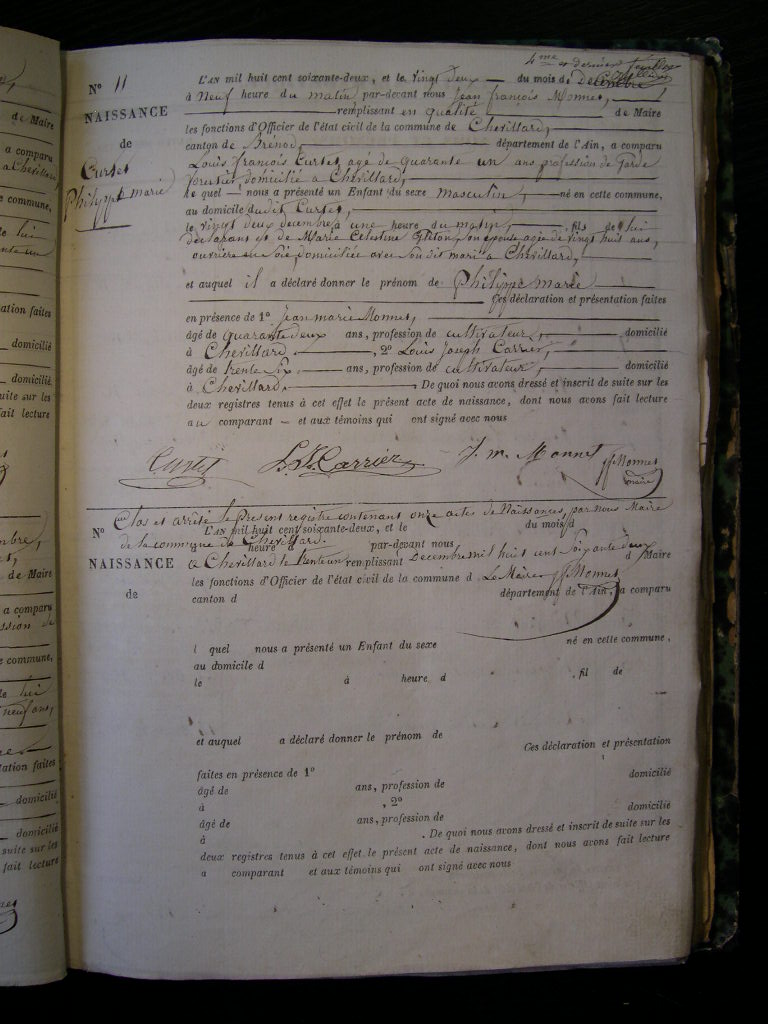 4me et dernier feuillet
N° 11
NAISSANCE
de
Curtet
Philippe marie
L'AN mil huit cent soixante-deux, et le vingt deux du mois de Décembre
à Neuf heure du matin par-devant nous Jean françois Monnet,
remplissant en qualité de Maire
les fonctions d'Officier de l'état civil de la commune de Chevillard,
canton de Brénod, département de l'Ain, a comparu
Louis françois Curtet, agé de quarante un ans profession de Garde
forestier, domicilié a Chevillard,
le quel nous a présenté un Enfant du sexe masculin, né en cette commune,
au domicile dudit Curtet,
le vingt deux decembre à une heure du matin, fils de lui
declarant et de Marie Celestine son epouse agée de vingt huit ans,
ouvrière en soie domiciliée avec son dit mari a Chevillard,
et auquel il a déclaré donner le prénom de Philippe marie
Ces déclaration et présentation faites
en présence de 1° Jean marie Monnet,
âgé de quarante deux ans, profession de cultivateur, domicilié
à Chevillard, 2° Louis Joseph Carrier,
âgé de trente six, ans, profession de cultivateur, domicilié
à Chevillard. De quoi nous avons dressé et inscrit de suite sur les
deux registres tenus à cet effet le présent acte de naissance, dont nous avons fait lecture
au comparant et aux témoins qui ont signé avec nous
Curtet L. J. Carrier J. m. Monnet jf Monnet
maire
Clos et arrêté le présent registre contenant onze actes de Naissances, par nous Maire
N° L'AN mil huit cent soixante-deux, et le du mois d
de la commune de Chevillard.
heure d par-devant nous
NAISSANCE
a Chevillard le trente un Decembre mil huit cent soixante deux
remplissant d Maire
les fonctions d'Officier de l'état civil de la commune d Le Maire jf Monnet
de
canton d département de l'Ain, a comparu
l quel nous a présenté un Enfant du sexe né en cette commune,
au domicile d
le à heure d , fil de
et auquel a déclaré donner le prénom de
Ces déclaration et présentation
faites en présence de 1°
domicilié
âgé de ans, profession de
à , 2°
domicilié
âgé de ans, profession de
à . De quoi nous avons dressé et inscrit de suite sur les
deux registres tenus à cet effet le présent acte de naissance, dont nous avons fait lecture
a comparant et aux témoins qui ont signé avec nous